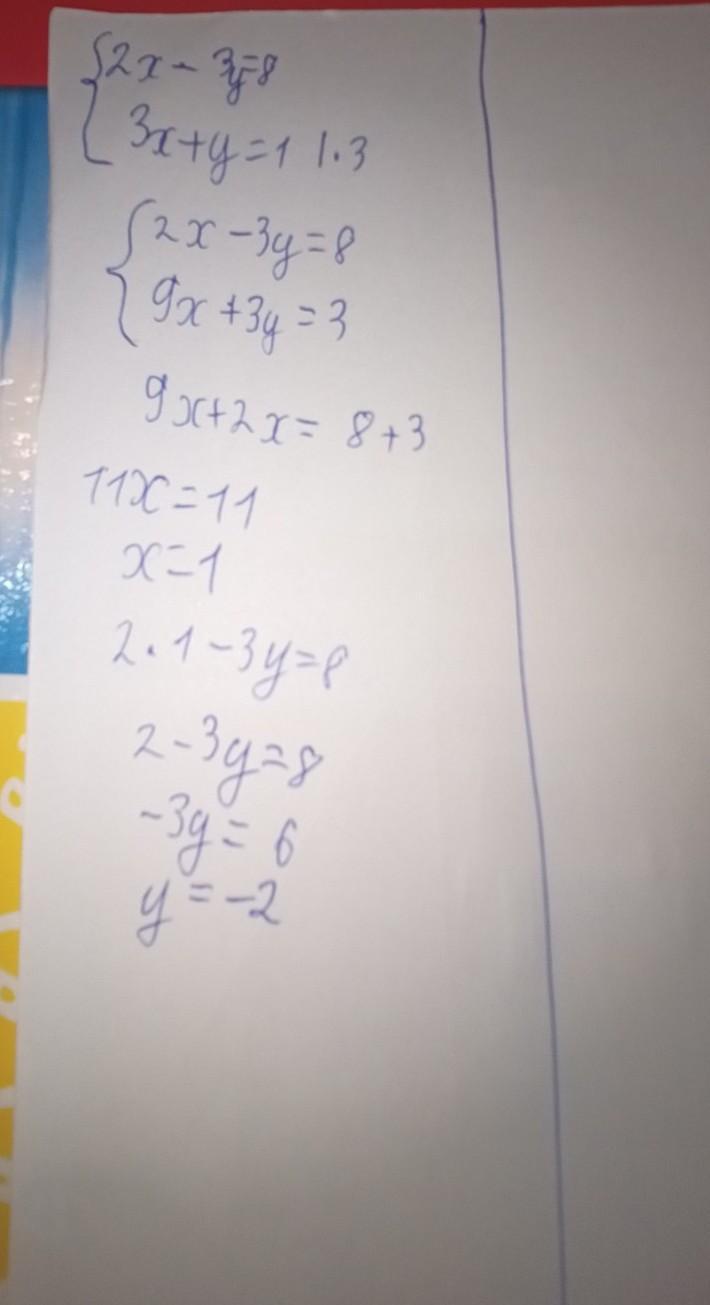 2x - 3y=8
3x+y=1 |·3
2x-3y=8
9x+3y=3
9x+2x= 8+3
11x=11
x=1
2·1-3y=8
2-3y=8
-3y= 6
y=-2